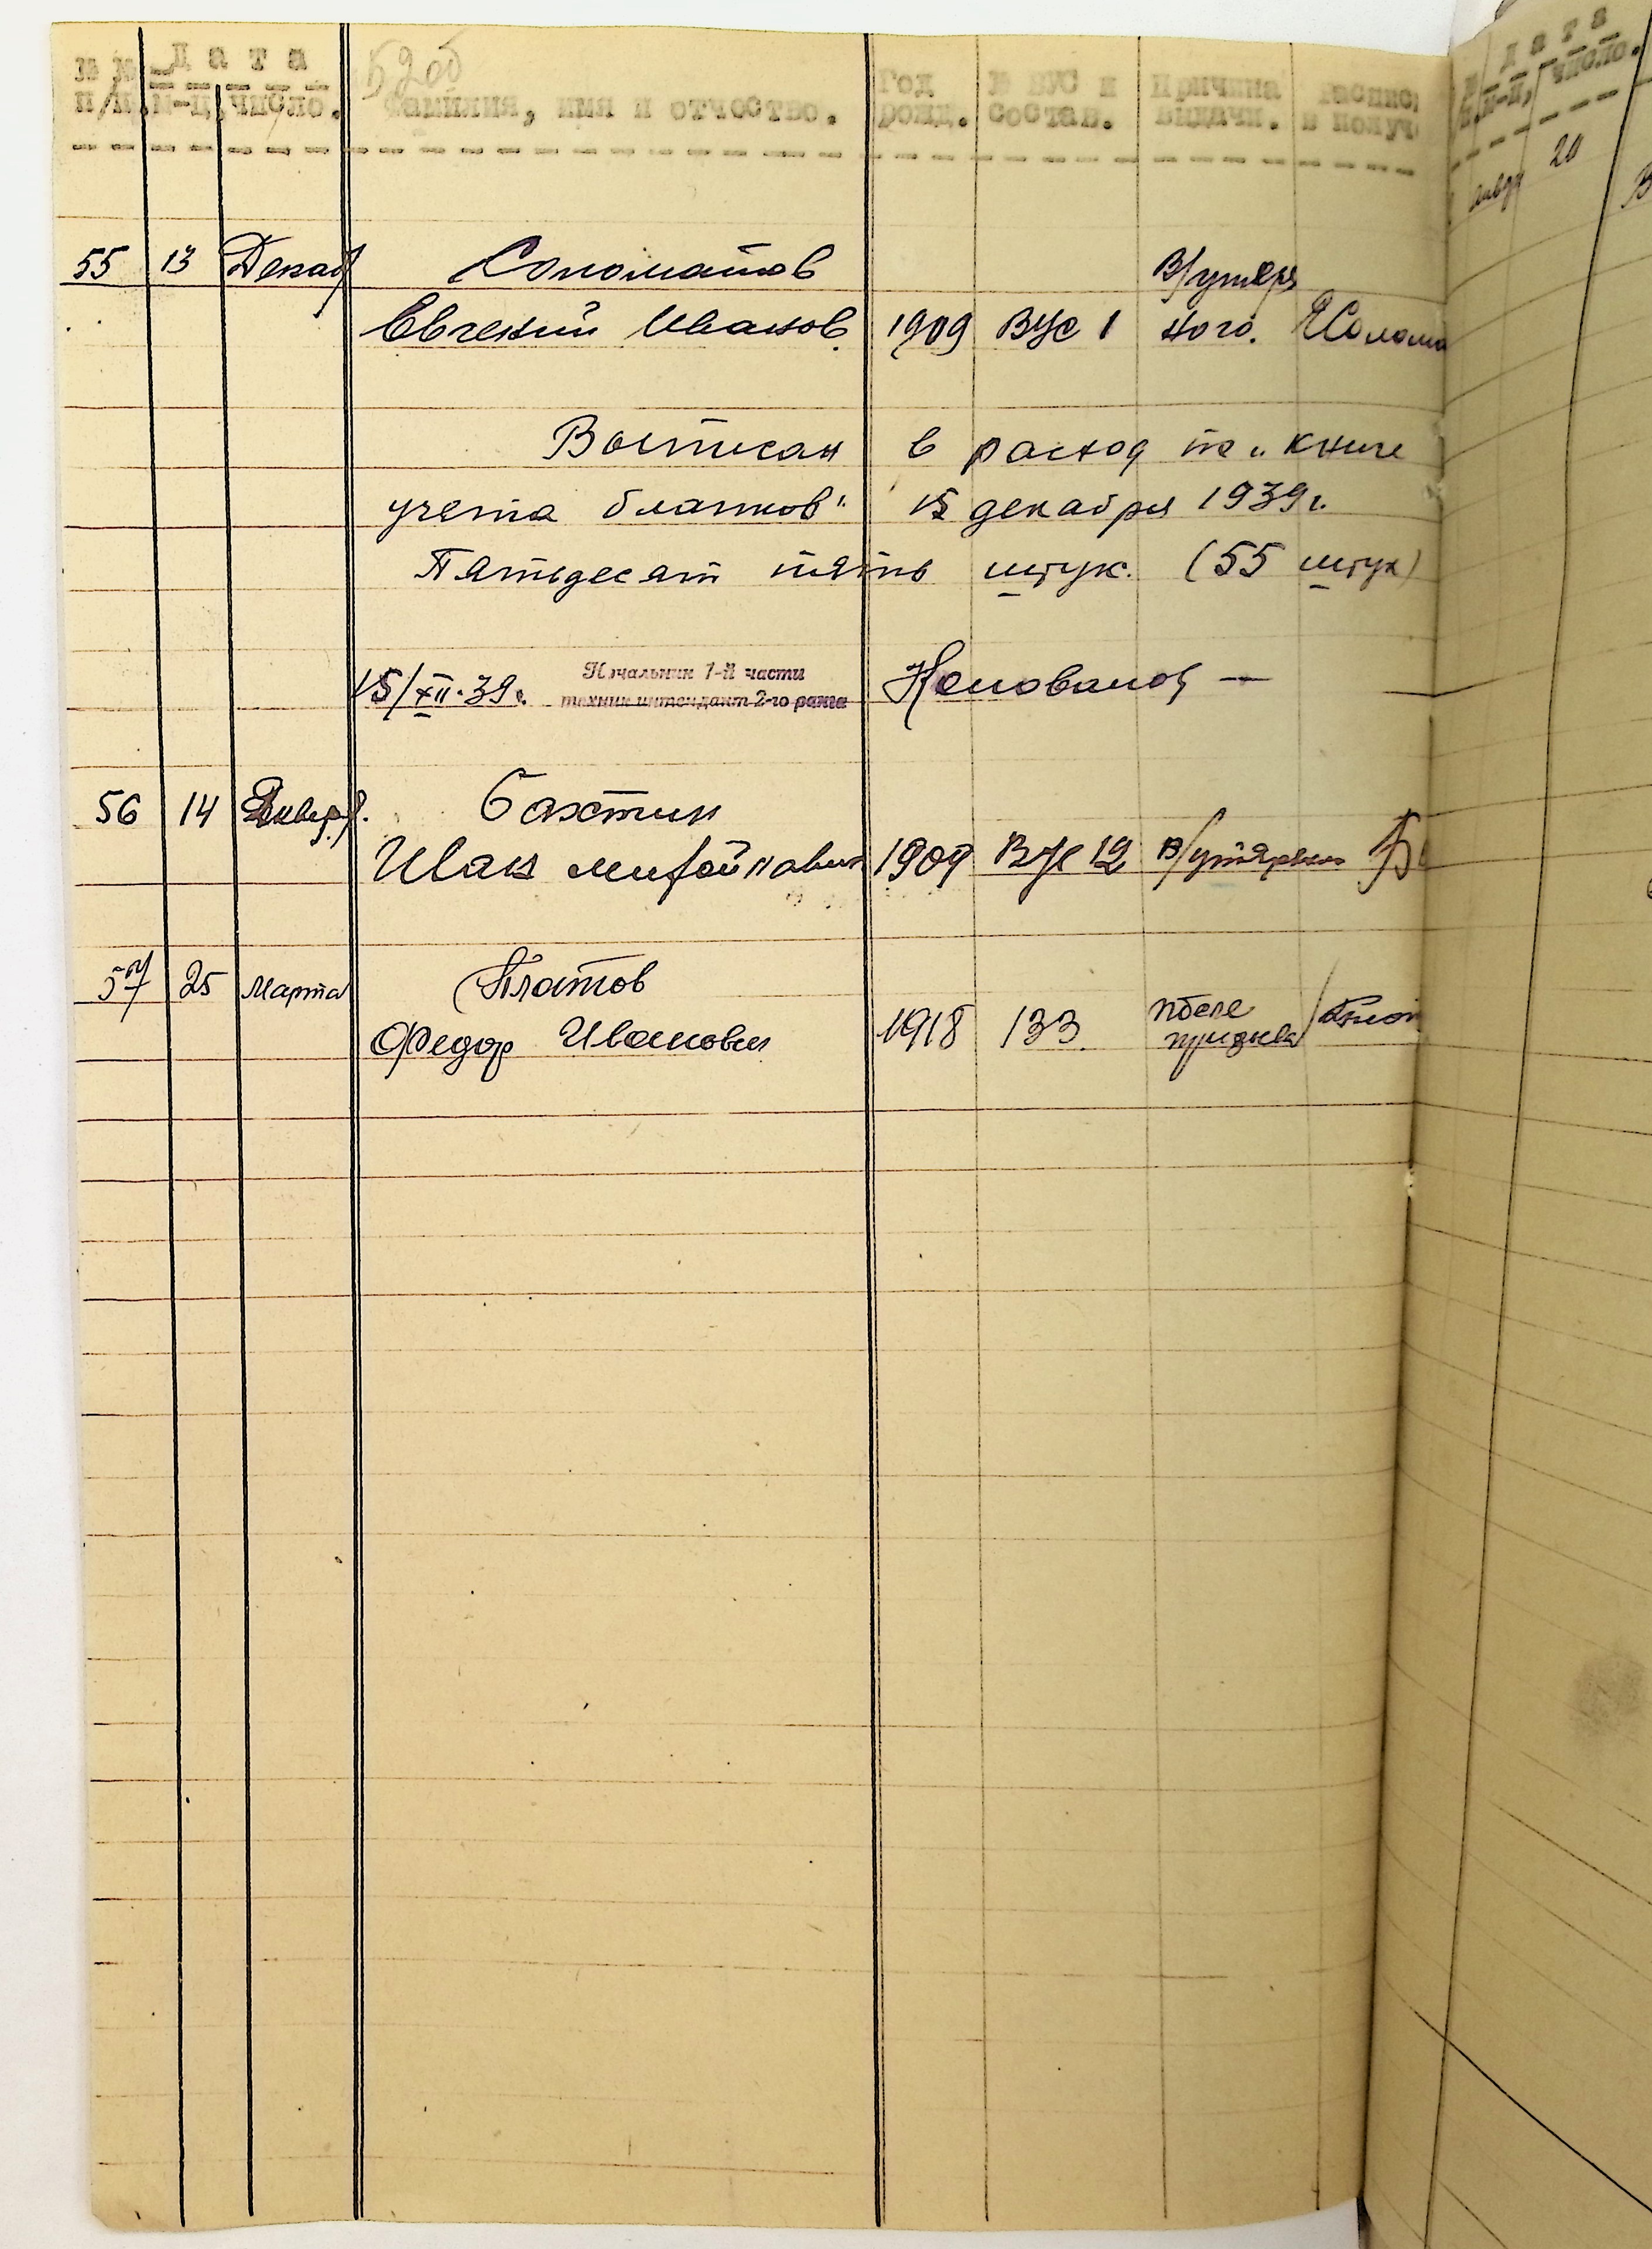 № № Д а т а 52 об Год № ВУС и Причина Распис
п/п. м-ц, число. Фамилия, имя и отчество. рожд. состав. выдачи. в получ
55 13 Декаб Соломатов В/утеря
Евгений Иванов. 1909 ВУС 1 ного. ЯСолома
Выписан в расход по „книге
учета бланков". 15 декабря 1939 г.
Пятьдесят пять штук. (55 штук)
15/XII-39 г. Начальник 1-й части
техник интендант 2-го ранга Коновалов —
56 14 Января. Бахтин
Иван 1909 ВУС 12 В/утярен
57 25 Марта Платов
Федор Иванович 1918 133 после
призыва
Д а т а
м-ц, число.
20